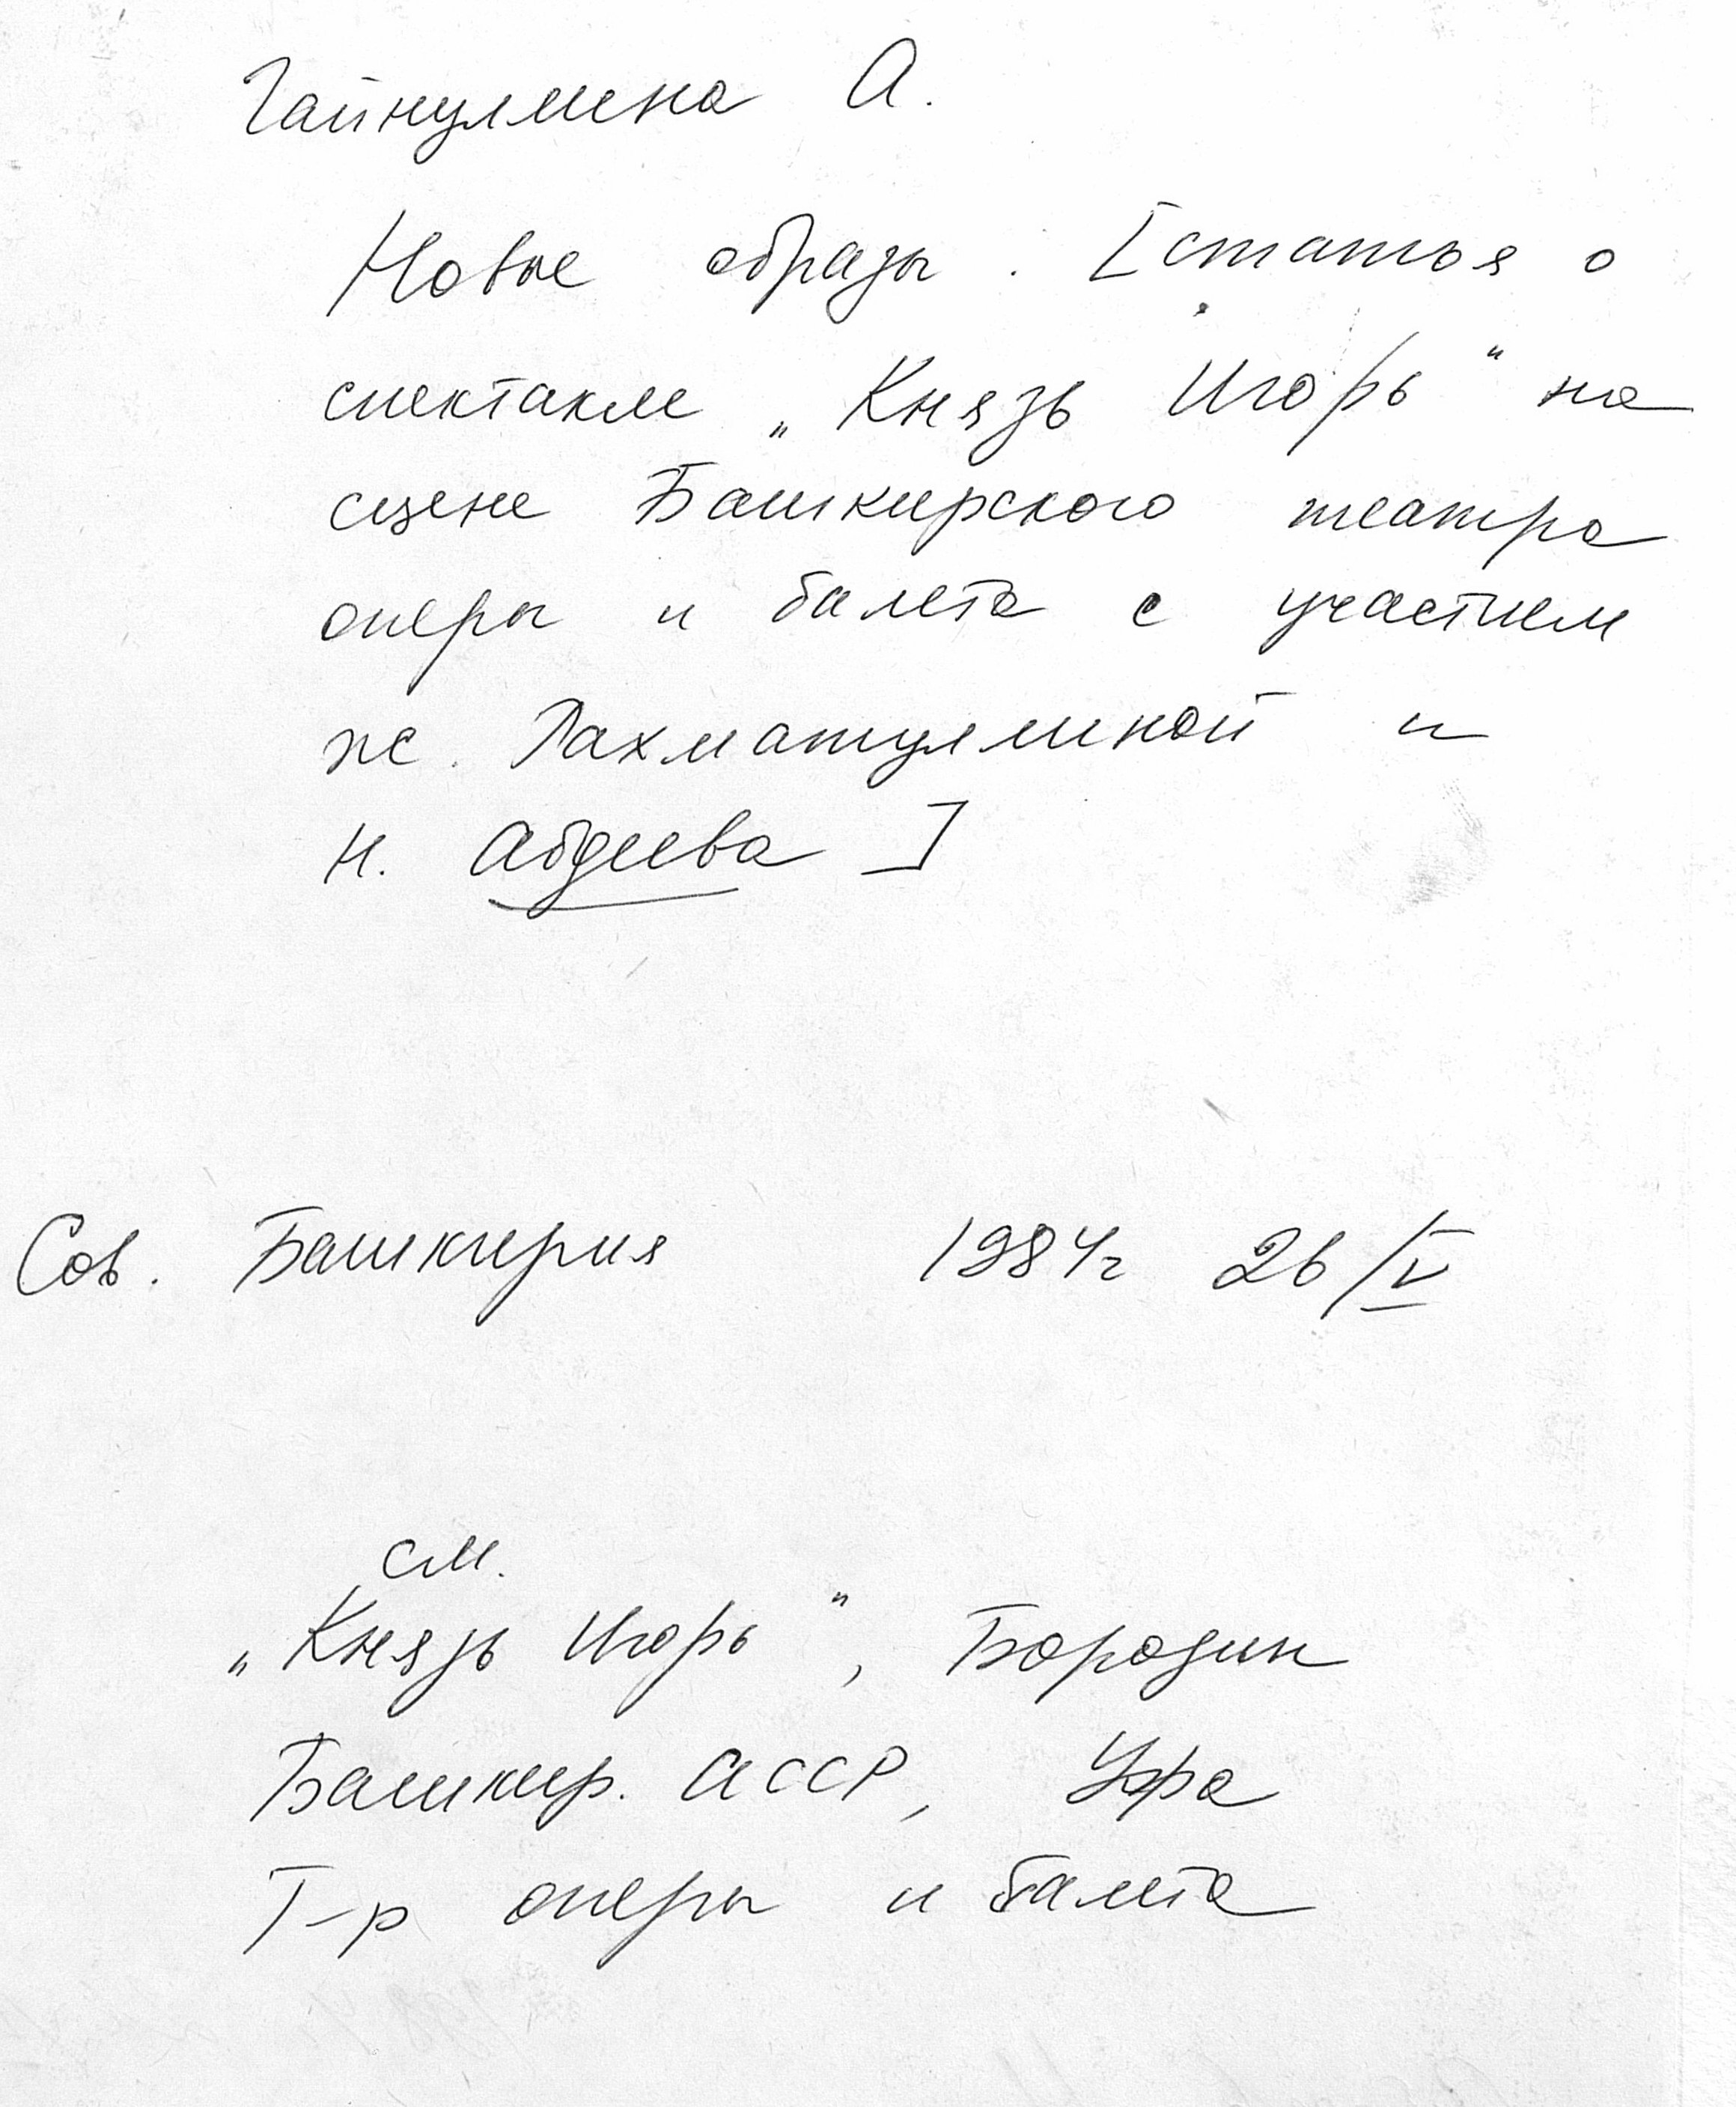 Гайнуллина А.
Новые образы. [статья о
спектакле „Князь Игорь" на
сцене Башкирского театра
оперы и балета с участием
ж. Рахматуллиной и
Н. Абдеева]
Сов. Башкирия 1984г 26/V
см.
„Князь Игорь", Бородин
Башкир. АССР, Уфа
Т-р оперы и балета